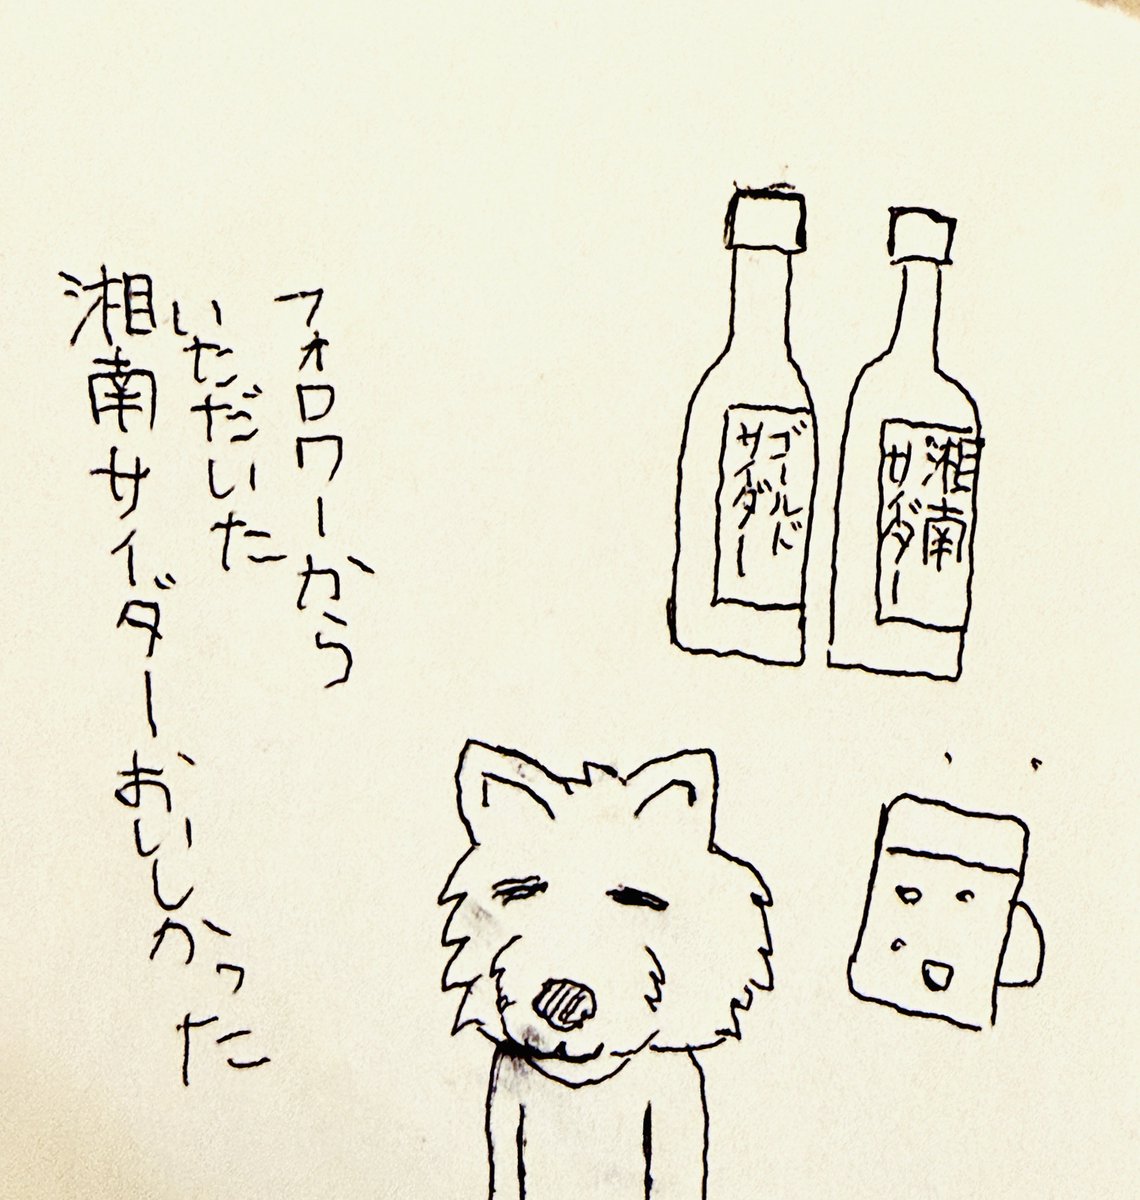 湘南
サイダー
ゴールド
サイダー
フォロワーから
いただいた
湘南サイダーおいしかった